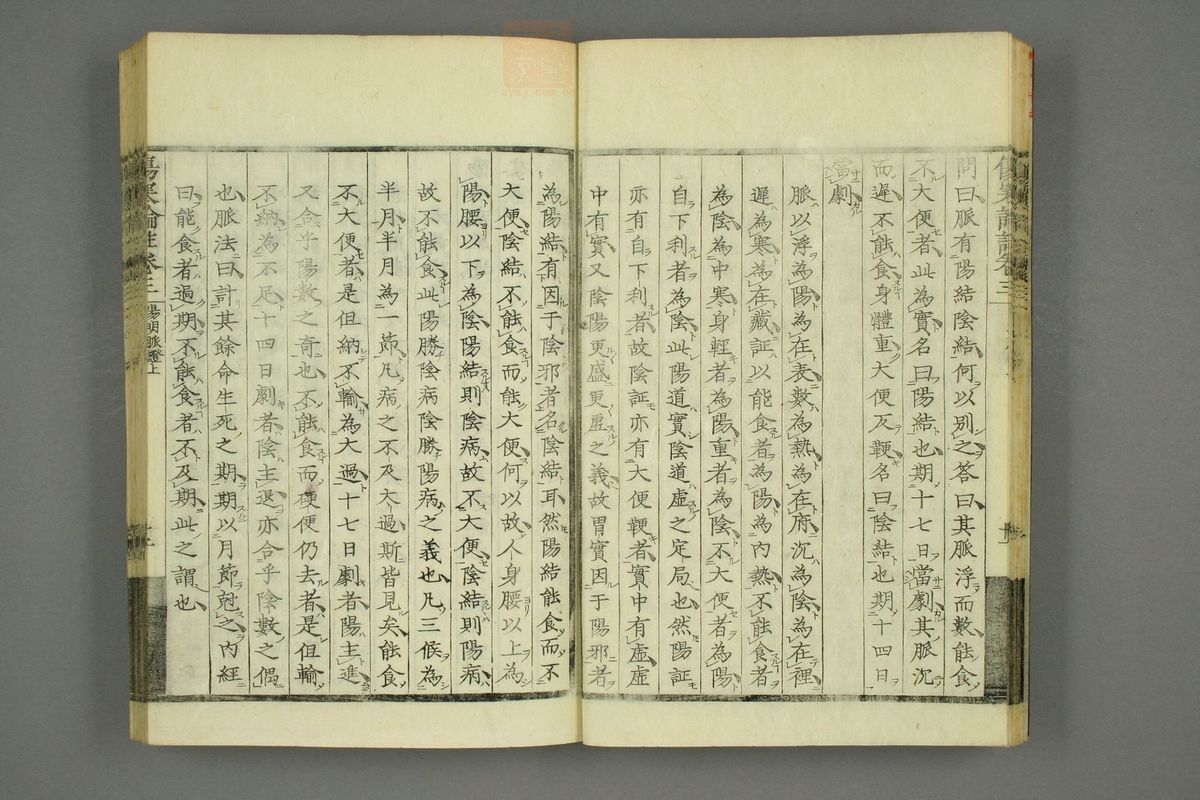 問曰脈有陽結陰結何以別之答曰其脈浮而數能食
不大便者此為實名曰陽結也期十七日當劇其脈沉
而遲不能食身體重大便反鞕名曰陰結也期十四日
當劇
脈以浮為陽為在表數為熱為在府沉為陰為在裡
遲為寒為在藏証以能食者為陽為內熱不能食者
為陰為中寒身輕者為陽重者為陰不大便者為陽
自下利者為陰此陽道實陰道虛之定局也然陽証
亦有自下利者故陰証亦有大便鞕者實中有虛虛
中有實又陰陽更盛更虛之義故胃實因于陽邪者
為陽結有因于陰邪者名陰結耳然陽結能食而不
大便陰結不能食而能大便何以故人身腰以上為
陽腰以下為陰陽結則陰病故不大便陰結則陽病
故不能食此陽勝陰病陰勝陽病之義也凡三候為
半月半月為一節凡病之不及太過斯皆見矣能食
不大便者是但納不輸為大過十七日劇者陽主進
又合乎陽數之奇也不能食而硬便仍去者是但輸
不納為不足十四日劇者陰主退亦合乎陰數之偶
也脈法曰計其餘命生死之期期以月節尅之內經
曰能食者過期不能食者不及期此之謂也
傷寒論註卷三
陽明脈證上